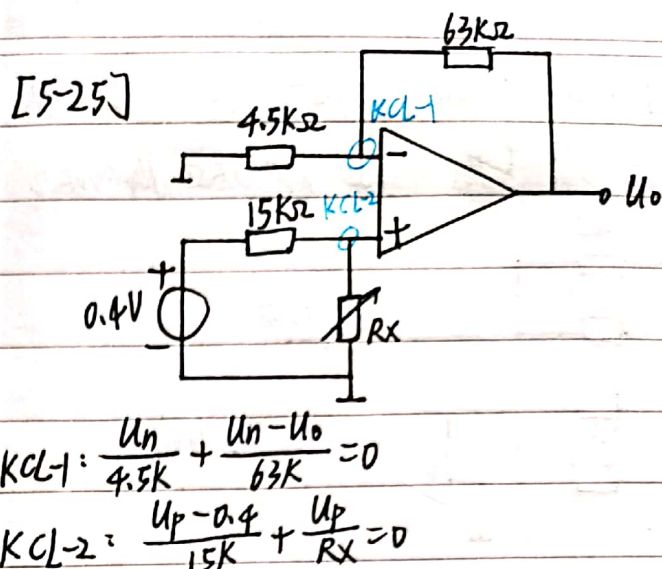 63KΩ
[5-25]
4.5KΩ
KCL-1
-
15KΩ
KCL-2
+
U₀
+
0.4V
-
RX
KCL-1: Un/4.5K + (Un-U₀)/63K = 0
KCL-2: (Up-0.4)/15K + Up/RX = 0